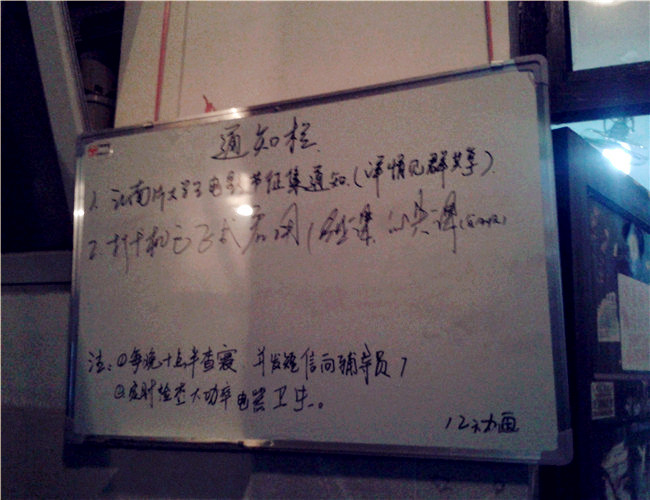 通知栏
1. 江南片大学生电影节征集通知.(详情见群共享).
2. 打卡机已正式启用(课
注:①每晚十点半查寝 并发短信向辅导员
②应时检查大功率电器卫生。
12动画